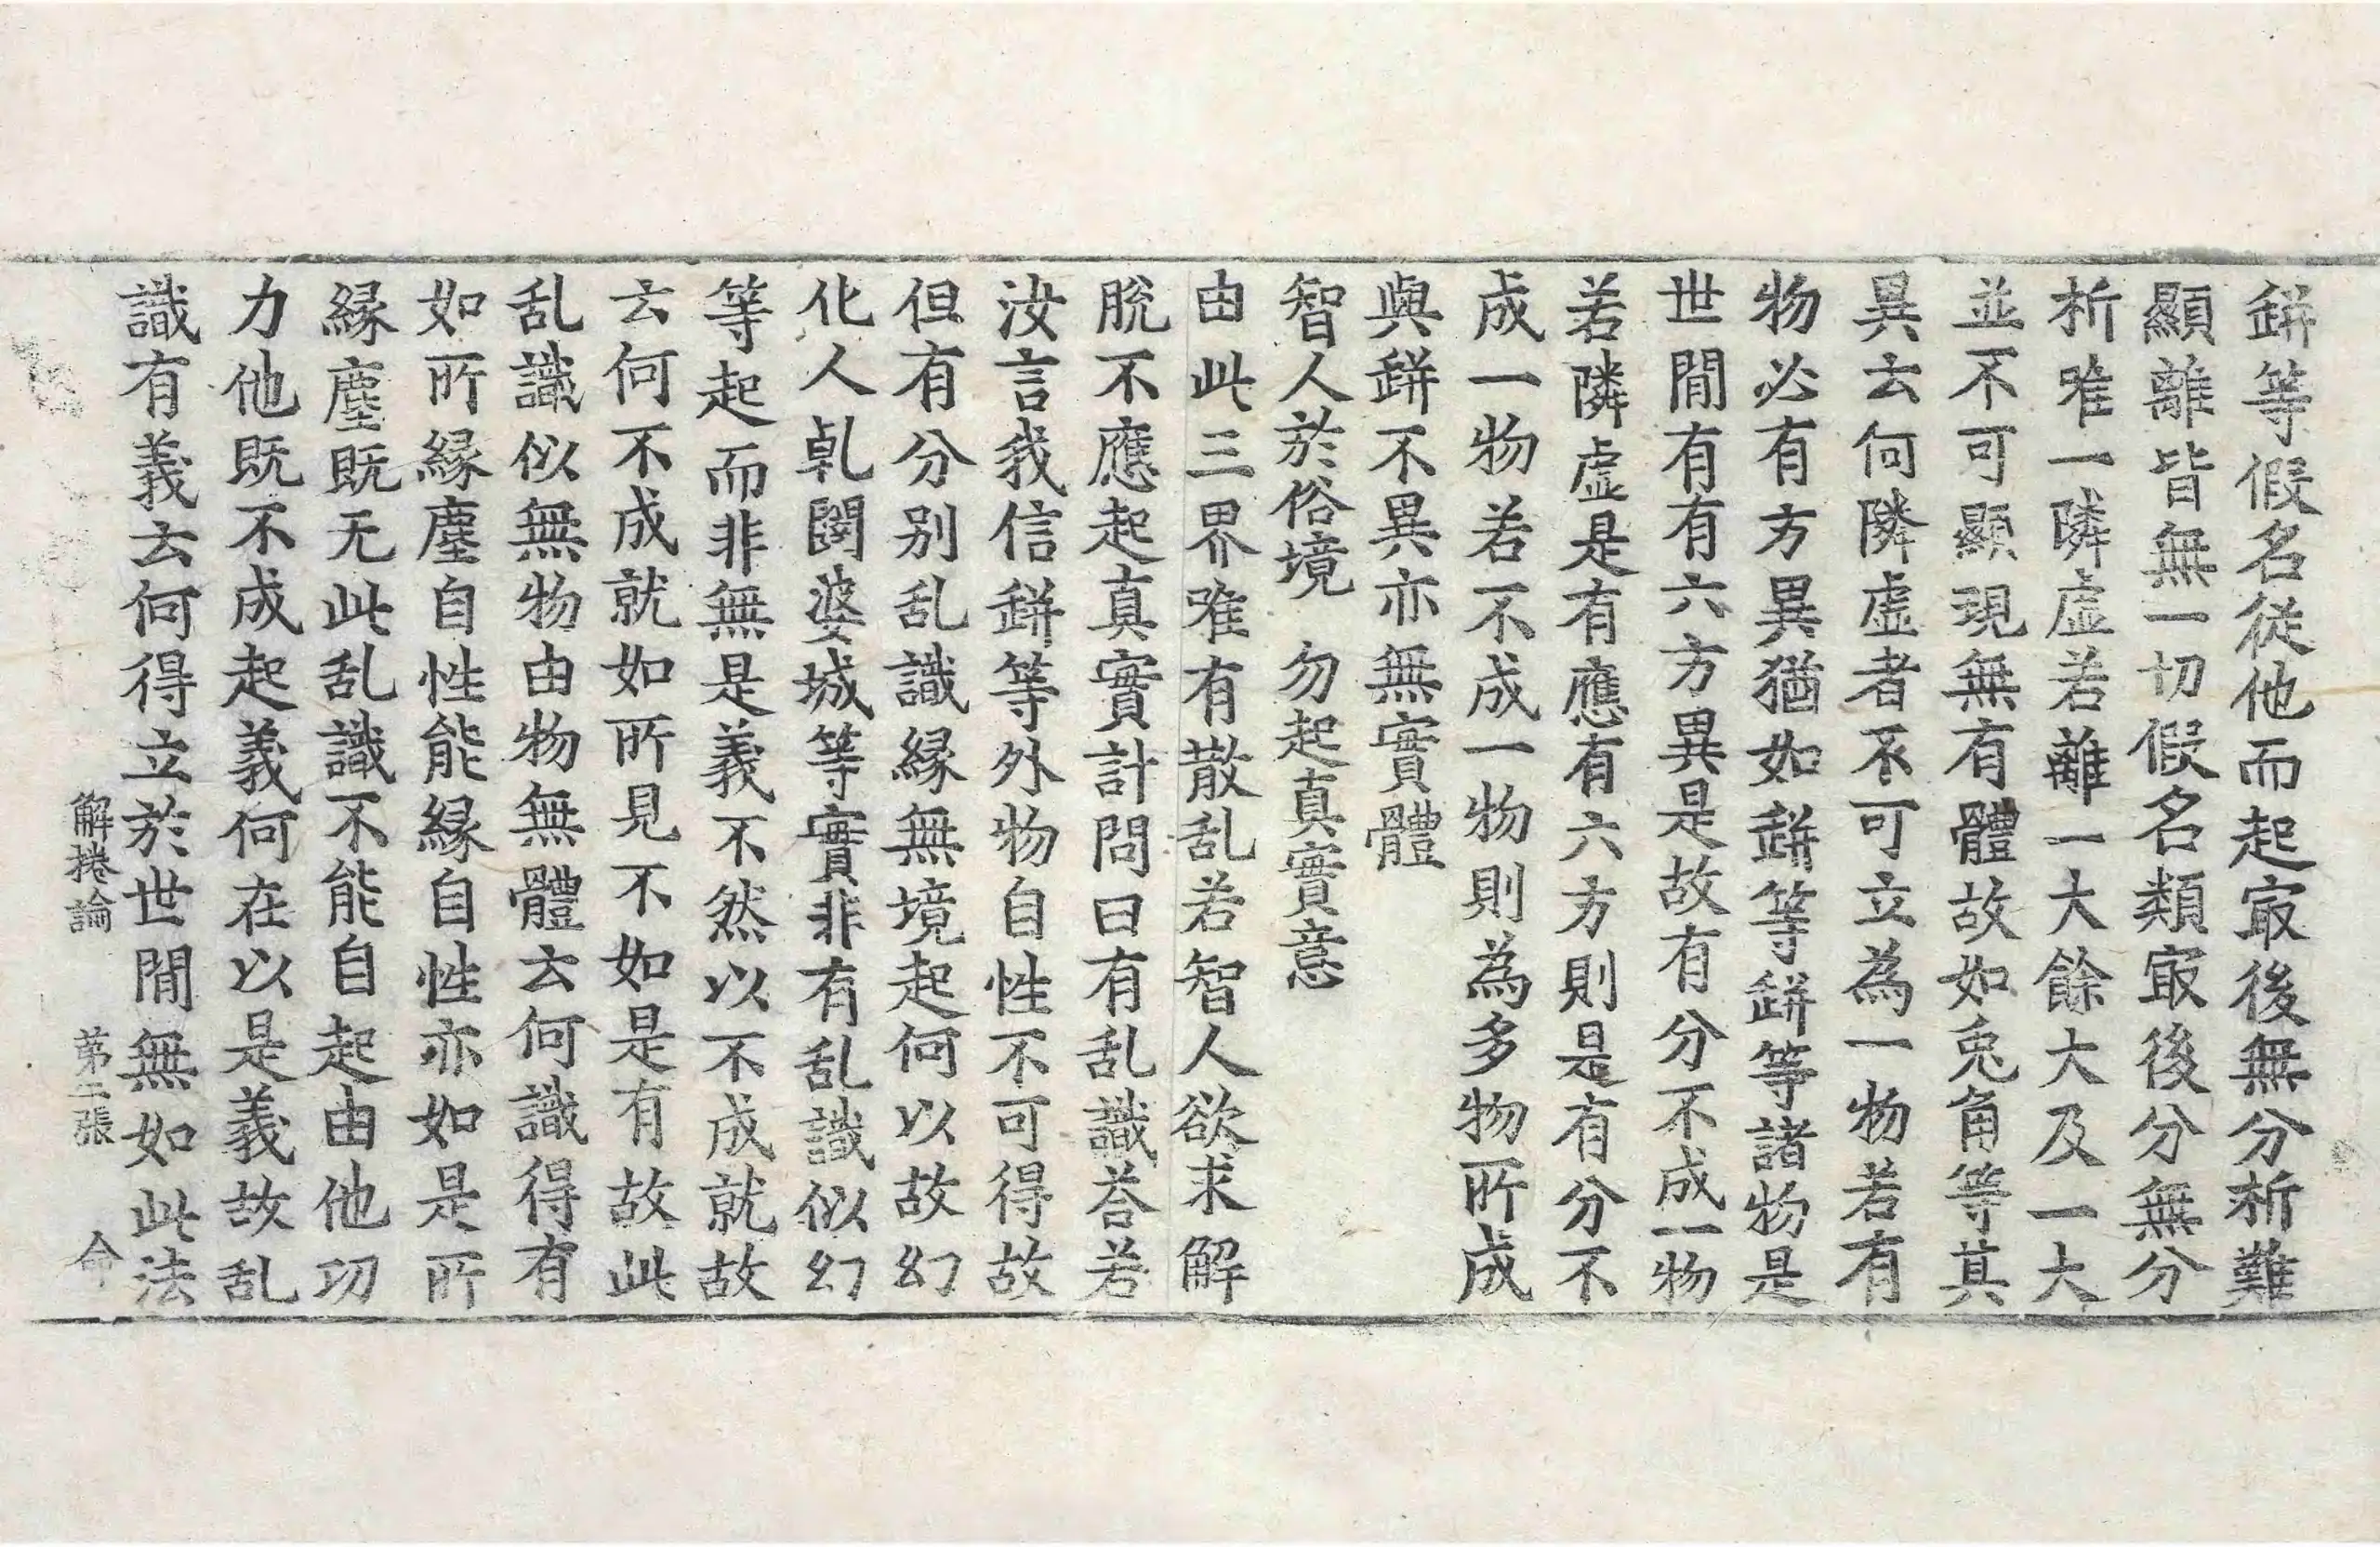 缾等假名從他而起㝡後無分析難
顯離皆無一切假名類㝡後分無分
析唯一隣虛若離一大餘大及一大
並不可顯現無有體故如兎角等其
異云何隣虛者不可立為一物若有
物必有方異猶如缾等缾等諸物是
世間有有六方異是故有分不成一物
若隣虛是有應有六方則是有分不
成一物若不成一物則為多物所成
與缾不異亦無實體
智人於俗境　勿起真實意
由此三界唯有散乱若智人欲求解
脫不應起真實計問曰有乱識荅若
汝言我信缾等外物自性不可得故
但有分別乱識緣無境起何以故幻
化人乹闥婆城等實非有乱識似幻
等起而非無是義不然以不成就故
云何不成就如所見不如是有故此
乱識似無物由物無體云何識得有
如所緣塵自性能緣自性亦如是所
緣塵既无此乱識不能自起由他功
力他既不成起義何在以是義故乱
識有義云何得立於世間無如此法
解捲論　第二張　命